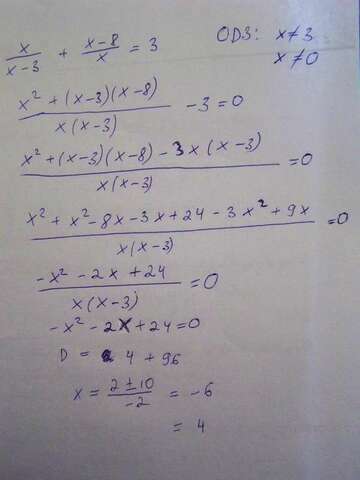 x/(x-3) + (x-8)/x = 3 ODЗ: x≠3
x≠0
(x² + (x-3)(x-8))/(x(x-3)) - 3 = 0
(x² + (x-3)(x-8) - 3x(x-3))/(x(x-3)) = 0
(x² + x² - 8x - 3x + 24 - 3x² + 9x)/(x(x-3)) = 0
(-x² - 2x + 24)/(x(x-3)) = 0
-x² - 2x + 24 = 0
D = 4 + 96
x = (2 ± 10)/(-2) = -6
= 4